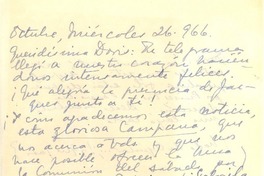 Octubre, Miércoles 26.966.
Queridísima Doris: Tu telegrama
llegó a nuestro corazón hacién
donos intensamente felices.
¡Qué alegría la presencia de Jac-
ques junto a Ti!
¡Y cómo agradecemos esta noticia,
esta gloriosa Campana, que
nos acerca a todo y que nos
hace posible ofrecer la Misa y
la Comunión del sábado por